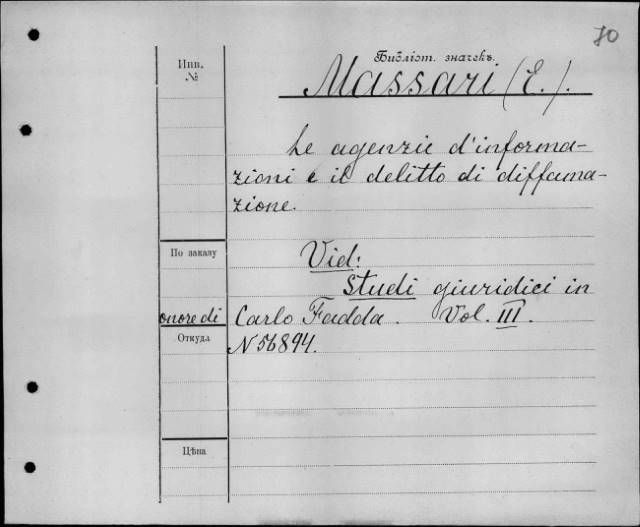 70
Библіот. значекъ.
Инв. №
Massari (E.).
Le agenzie d'informa-
zioni e il delitto di diffama-
zione.
По заказу
Vid:
Studi giuridici in
onore di Carlo Fadda. Vol. III.
Откуда
N 56894.
Цѣна